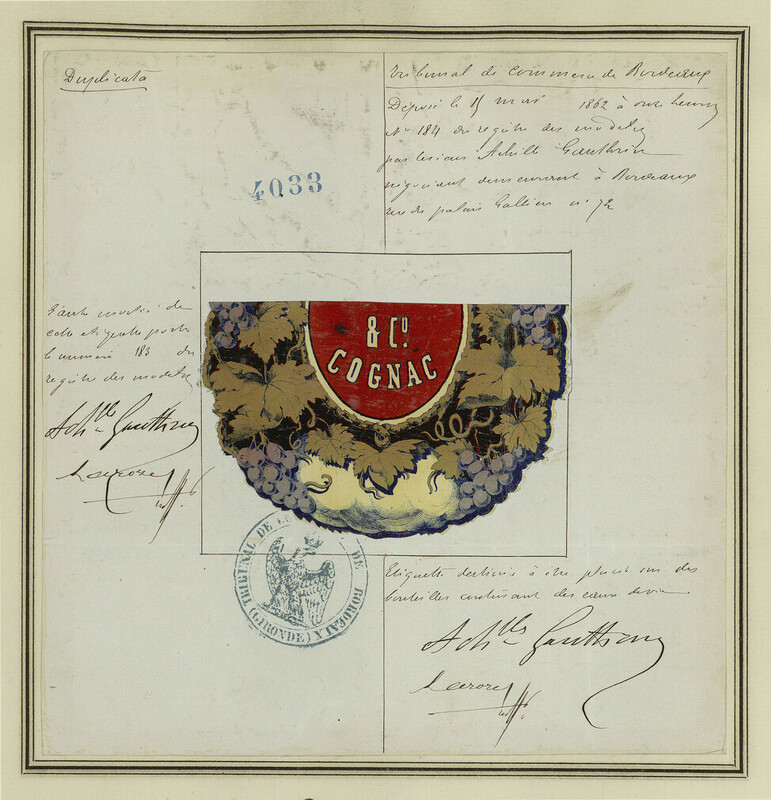 Duplicata
4033
Tribunal de Commerce de Bordeaux
Déposé le 15 mars 1862 à onze heures
N° 184 du registre des modeles
par le sieur Achille Gauthrin
négociant demeurant à Bordeaux
rue du palais Gallien n° 72
& Cº
COGNAC
L'autre moitié de
cette etiquette porte
le numéro 183 du
registre des modeles
Ach.lle Gauthrin
TRIBUNAL DE DE BORDEAUX
(GIRONDE)
Etiquette destinée à être placée sur des
bouteilles contenant des eaux de vie
Ach.lle Gauthrin